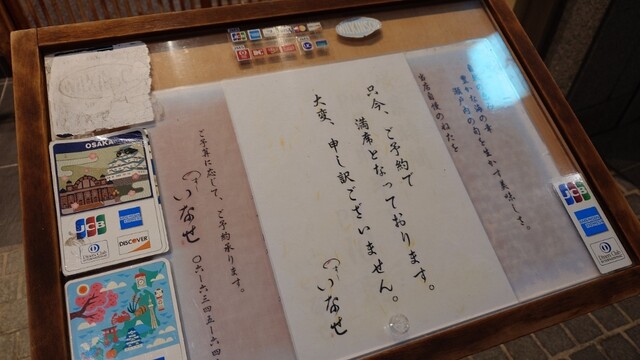 只今、ご予約で
満席となっております。
大変、申し訳ございません。
いなせ
豊かな海の幸
瀬戸内の旬を生かす美味しさ。
当店自慢のねたを
ご予算に応じて、ご予約承ります。
いなせ
〇六-六三四五-一四
OSAKA
JCB
AMERICAN EXPRESS
Diners Club
DISCOVER
JCB
AMERICAN EXPRESS
Diners Club